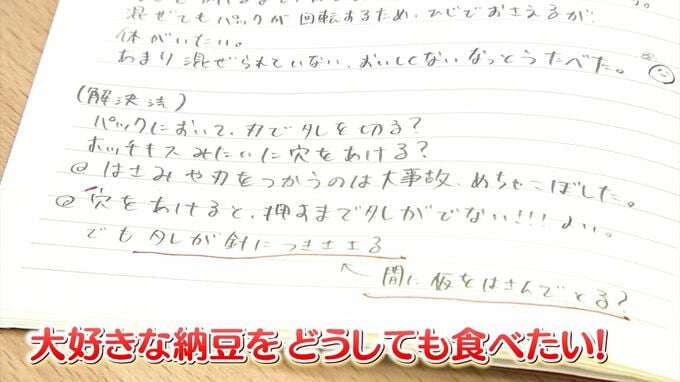 混ぜてもパックが回転するため、ひじでおさえるが
体がいたい。
あまり混ぜられていない、おいしくないなっとうたべた。
(解決法)
パックにおいて、刃でタレを切る?
ホッチキスみたいに穴をあける?
◎はさみや刃をつかうのは大事故、めちゃこぼした。
◎穴をあけると、押すまでタレがでない!!!よい。
でもタレが針につきささる
↖間に板をはさんでとる?
大好きな納豆を どうしても食べたい!